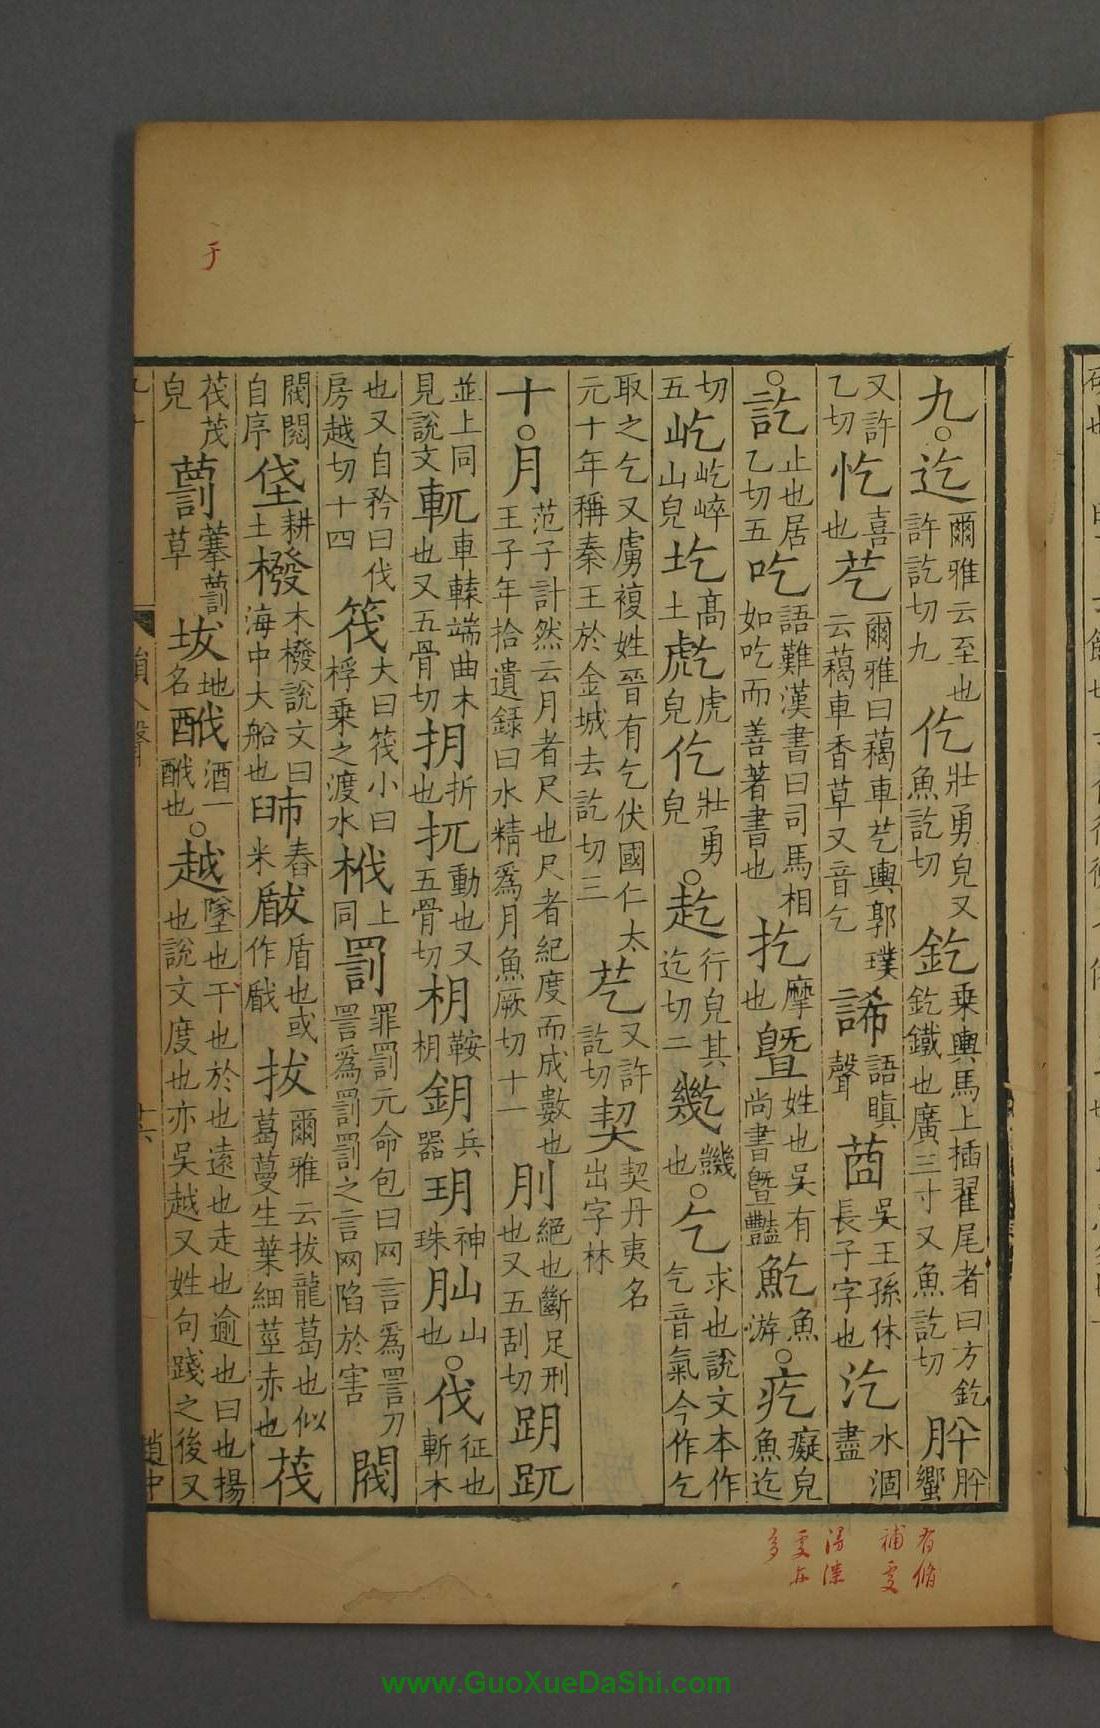 九○迄爾雅云至也許訖切九仡壯勇皃又魚訖切釳乘輿馬上插翟尾者曰方釳釳鐵也廣三寸又魚訖切肸肸蠁
又許乙切忔喜也芞爾雅曰藒車芞輿郭璞云藒車香草又音乞誒語瞋聲𦮼吳王孫休長子字也汔水涸盡
○訖止也居乙切五吃語難漢書曰司馬相如吃而善著書也扢摩也暨姓也吳有尚書曁豔䰴魚游○疙癡皃魚迄
切五屹屹崪山皃圪高土虓虎皃仡壯勇皃○赶行皃其迄切二㡮𨦇也○乞求也說文本作乞音氣今作乞
取之乞又虜複姓晉有乞伏國仁太元十年稱秦王於金城去訖切三芞又許訖切契契丹夷名出字林
十○月范子計然云月者尺也尺者紀度而成數也王子年拾遺錄曰水精爲月魚厥切十一刖絕也斷足刑也又五刮切跀䟢
並上同見說文軏車轅端曲木也又五骨切抈折也扤動也又五骨切枂鞍枂鈅兵器玥神珠𡵳山也○伐征也斬木
也又自矜曰伐房越切十四筏大曰筏小曰桴乘之渡水栰上同罰罪罰元命包曰网言爲詈刀詈爲罰罰之言网陷於害閥
閥閱自序垡耕土橃木橃說文曰海中大船也𦥦舂米瞂盾也或作𢧕拔爾雅云拔蘢葛也似葛蔓生葉細莖赤也茷
茷茂皃藅藆藅草坺地名𨠵酒一𨠵也○越墜也干也於也遠也走也逾也曰也揚也說文度也亦吳越又姓句踐之後又
韻入聲
十六
趙中
于
有脩
補叜
多
www.GuoXueDaShi.com